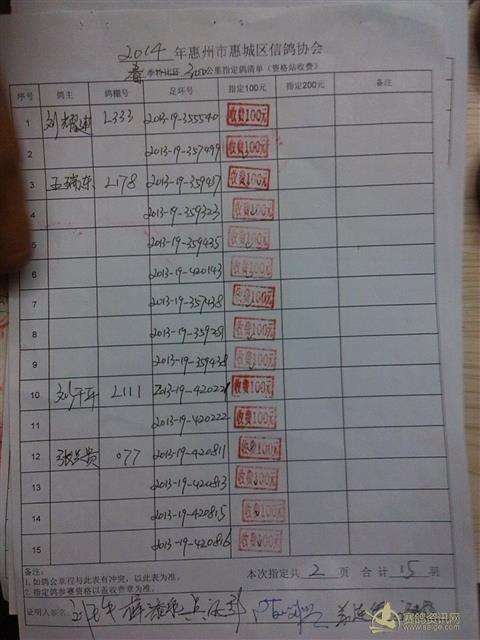 2014 年惠州市惠城区信鸽协会
春季特比环 300公里指定鸽清单(资格站收费)
序号 鸽主 鸽棚号 足环号 指定100元 指定200元 备注
1 L333 2013-19-355540 收费100元
2 2013-19-357499 收费100元
3 王瑞东 L178 2013-19-359437 收费100元
4 2013-19-359323 收费100元
5 2013-19-359435 收费100元
6 2013-19-420143 收费100元
7 2013-19-357438 收费100元
8 收费100元
9 2013-19-359438 收费100元
10 L111 2013-19-420221 收费100元
11 2013-19-420222 收费100元
12 077 2013-19-420811 收费100元
13 2013-19-420813 收费100元
14 2013-19-420815 收费100元
15 2013-19-420816 收费100元
备注: 本次指定共 2 页 合计 15 羽
1.如鸽会章程与此表有冲突,以此表为准。
2.指定鸽参赛资格以盖收费章为准。
证明人签名:
赛鸽资讯网